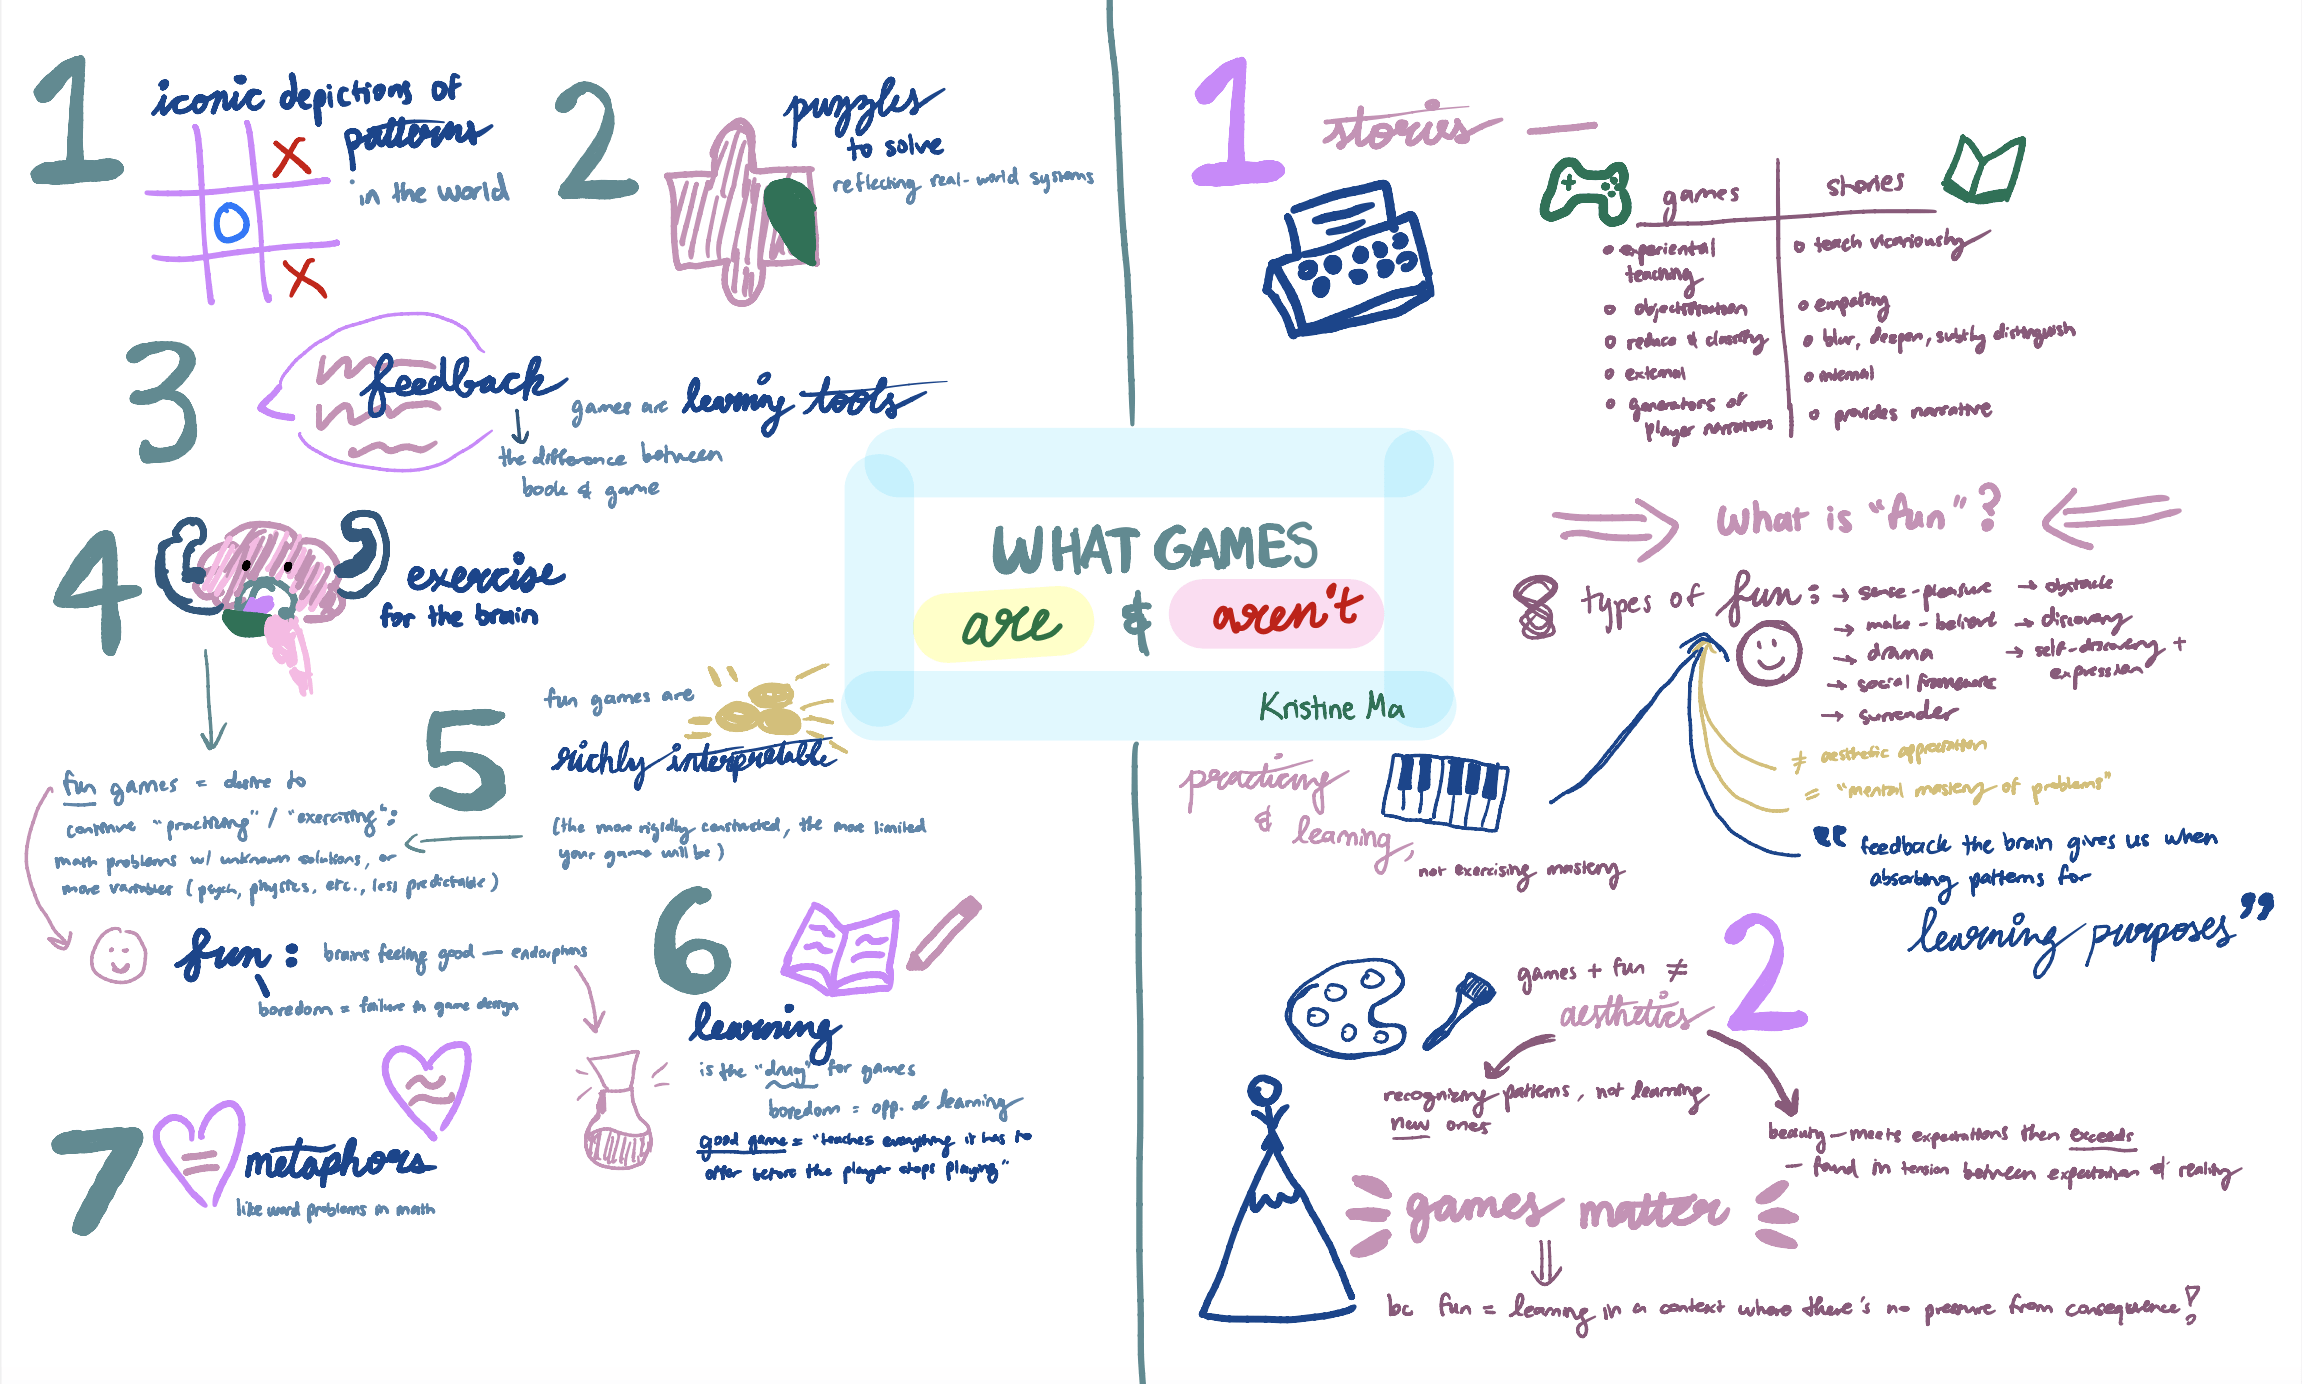 WHAT GAMES
are & aren't
Kristine Ma
1
iconic depictions of
patterns
in the world
2
puzzles
to solve
reflecting real-world systems
3
feedback
games are learning tools
the difference between
book & game
4
exercise
for the brain
fun games = desire to
continue "practicing" / "exercising":
math problems w/ unknown solutions, or
more variables (psych, physics, etc., less predictable)
fun: brains feeling good — endorphins
boredom = failure in game design
5
fun games are
richly interpretable
(the more rigidly constructed, the more limited
your game will be)
6
learning
is the "drug" for games
boredom = opp. of learning
good game = "teaches everything it has to
offer before the player stops playing"
7
metaphors
like word problems in math
1
stories —
games
experiential
teaching
objectification
reduce & classify
external
generators of
player narratives
stories
teach vicariously
empathy
blur, deepen, subtly distinguish
internal
provides narrative
What is "fun"?
8 types of fun:
→ sense-pleasure
→ make-believe
→ drama
→ social framework
→ surrender
→ obstacle
→ discovery
→ self-discovery +
expression
≠ aesthetic appreciation
= "mental mastery of problems"
“ feedback the brain gives us when
absorbing patterns for
learning purposes”
practicing
& learning,
not exercising mastery
2
games + fun ≠
aesthetics
recognizing patterns, not learning
new ones
beauty — meets expectations then exceeds
— found in tension between expectation & reality
games matter
bc fun = learning in a context where there's no pressure from consequence!